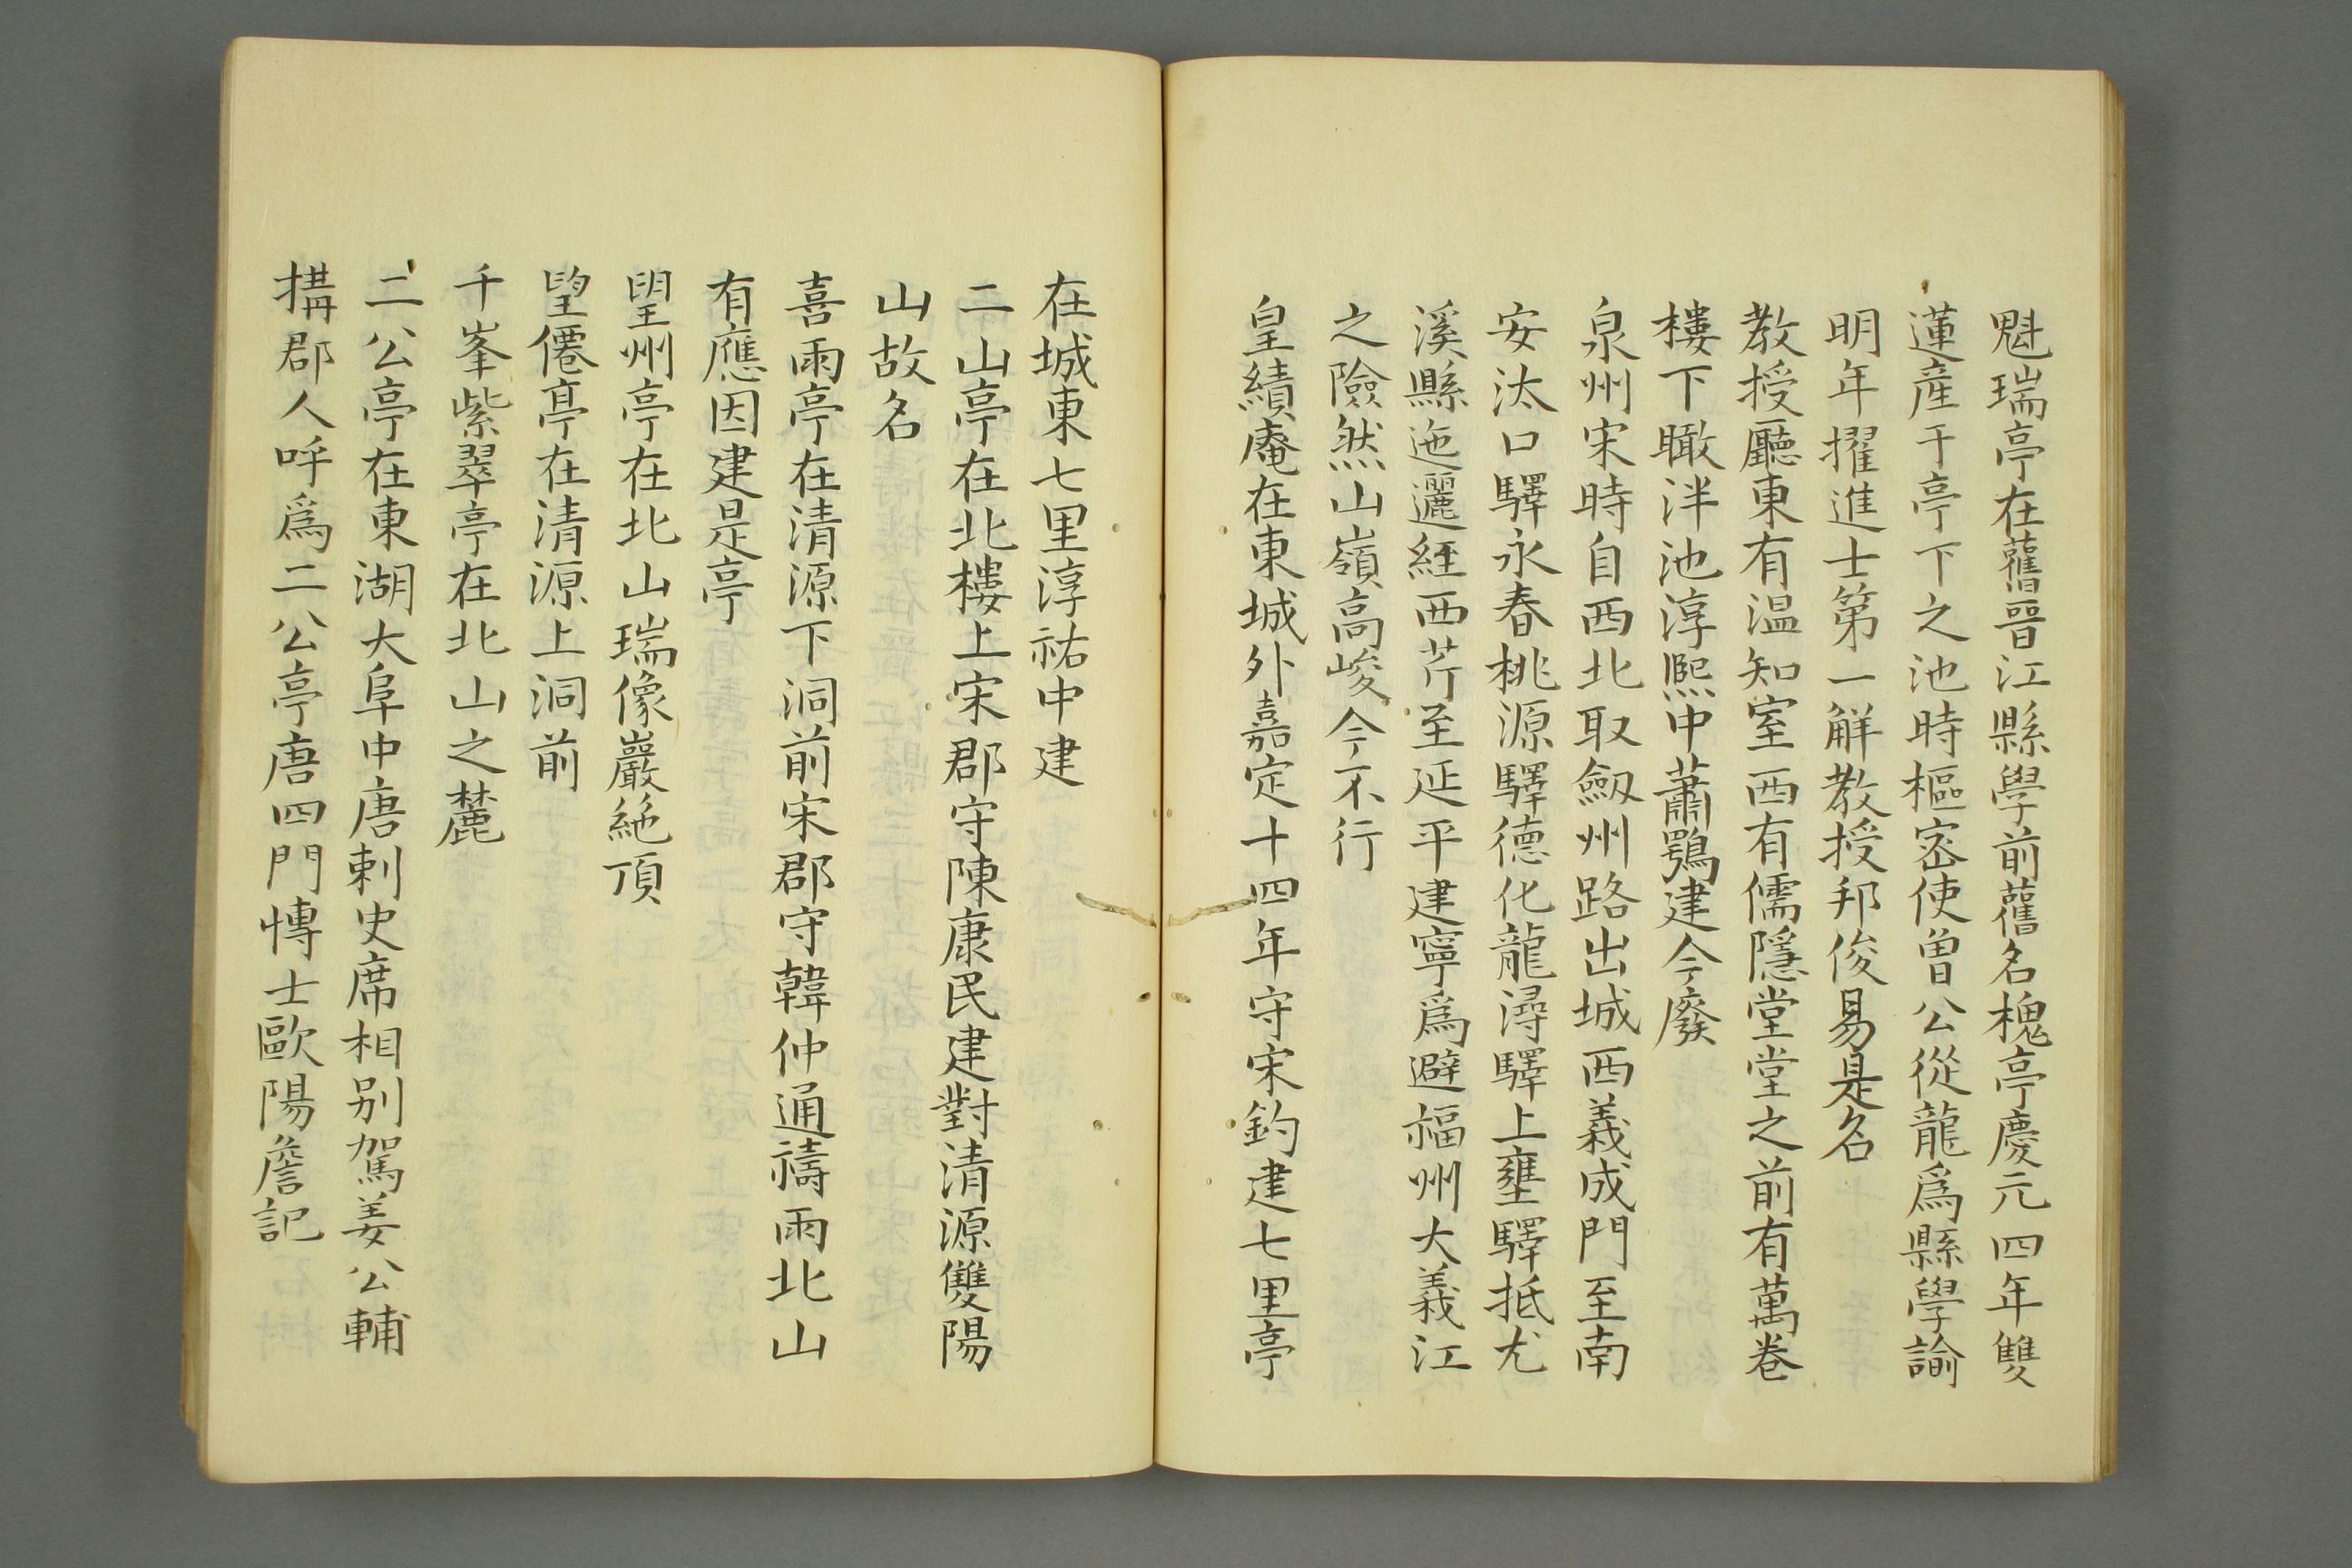 魁瑞亭在舊晉江縣學前舊名槐亭慶元四年雙
蓮產于亭下之池時樞密使曽公從龍爲縣學諭
明年擢進士第一觧教授邦俊易是名
教授廳東有温知室西有儒隱堂堂之前有萬卷
樓下瞰泮池淳熈中蕭鶚建今廢
泉州宋時自西北取劔州路出城西義成門至南
安汰口驛永春桃源驛德化龍潯驛上壅驛抵尤
溪縣迤邐經西芹至延平建寧爲避福州大義江
之險然山嶺高峻今不行
皇績庵在東城外嘉定十四年守宋鈞建七里亭
在城東七里淳祐中建
二山亭在北樓上宋郡守陳康民建對清源雙陽
山故名
喜雨亭在清源下洞前宋郡守韓仲通禱雨北山
有應因建是亭
望州亭在北山瑞像巖絶頂
望僊亭在清源上洞前
千峯紫翠亭在北山之麓
二公亭在東湖大阜中唐刺史席相别駕姜公輔
搆郡人呼爲二公亭唐四門愽士歐陽詹記